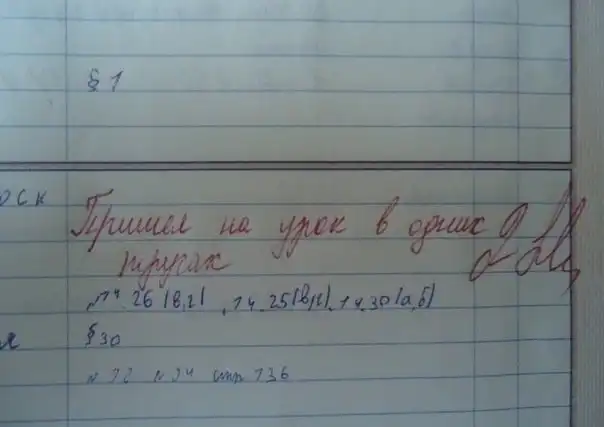 § 1
оск
Пришел на урок в одних
трусах
№14.26(в,г), 14.25(в,г), 14.30(а,б)
я
§30
№ 12 № 14 стр 136